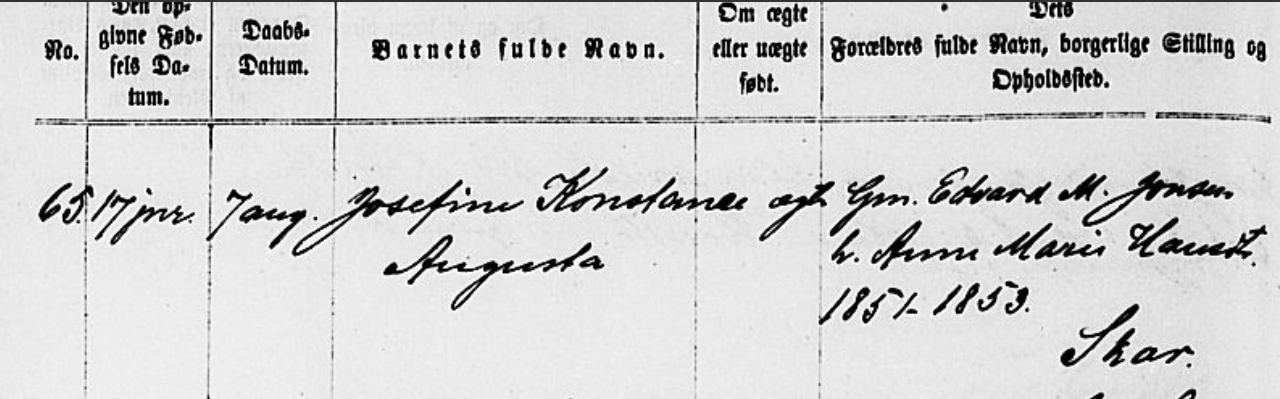 No.
Den op-
givne Fød-
sels Da-
tum.
Daabs-
Datum.
Barnets fulde Navn.
Om ægte
eller uægte
født.
Dets
Forældres fulde Navn, borgerlige Stilling og
Opholdssted.
65. 17 jnr. 7 aug. Josefine Konstance ægt. Gm. Edvard M. Jonsen
Augusta
h. Anne Marie Hansdt.
1851-1853.
Skar.